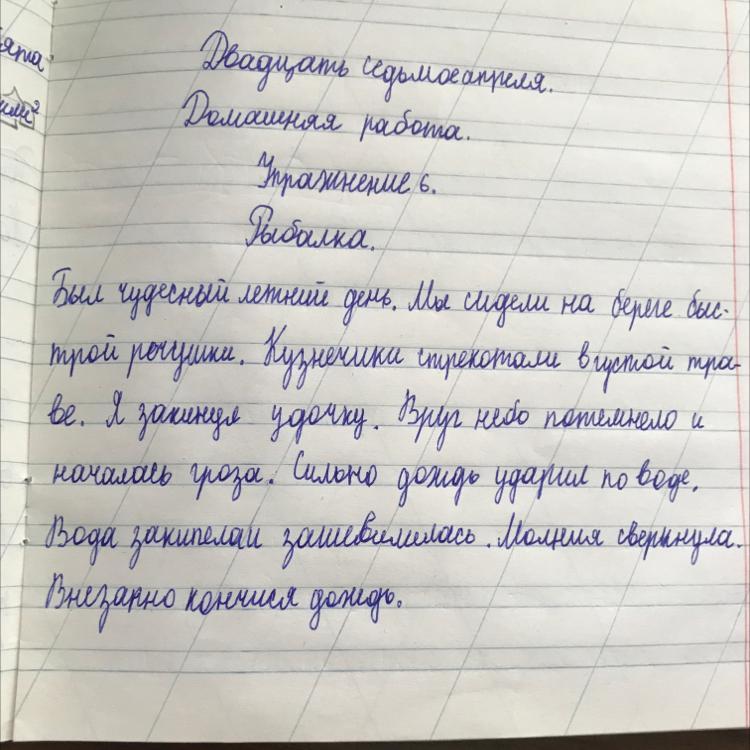 ята
или²
Двадцать седьмое апреля.
Домашняя работа.
Упражнение 6.
Рыбалка.
Был чудесный летний день. Мы сидели на береге быс-
трой речушки. Кузнечики стрекотали в густой тра-
ве. Я закинул удочку. Вруг небо потемнело и
началась гроза. Сильно дождь ударил по воде.
Вода закипела и зашевилилась. Молния сверкнула.
Внезапно кончися дождь.